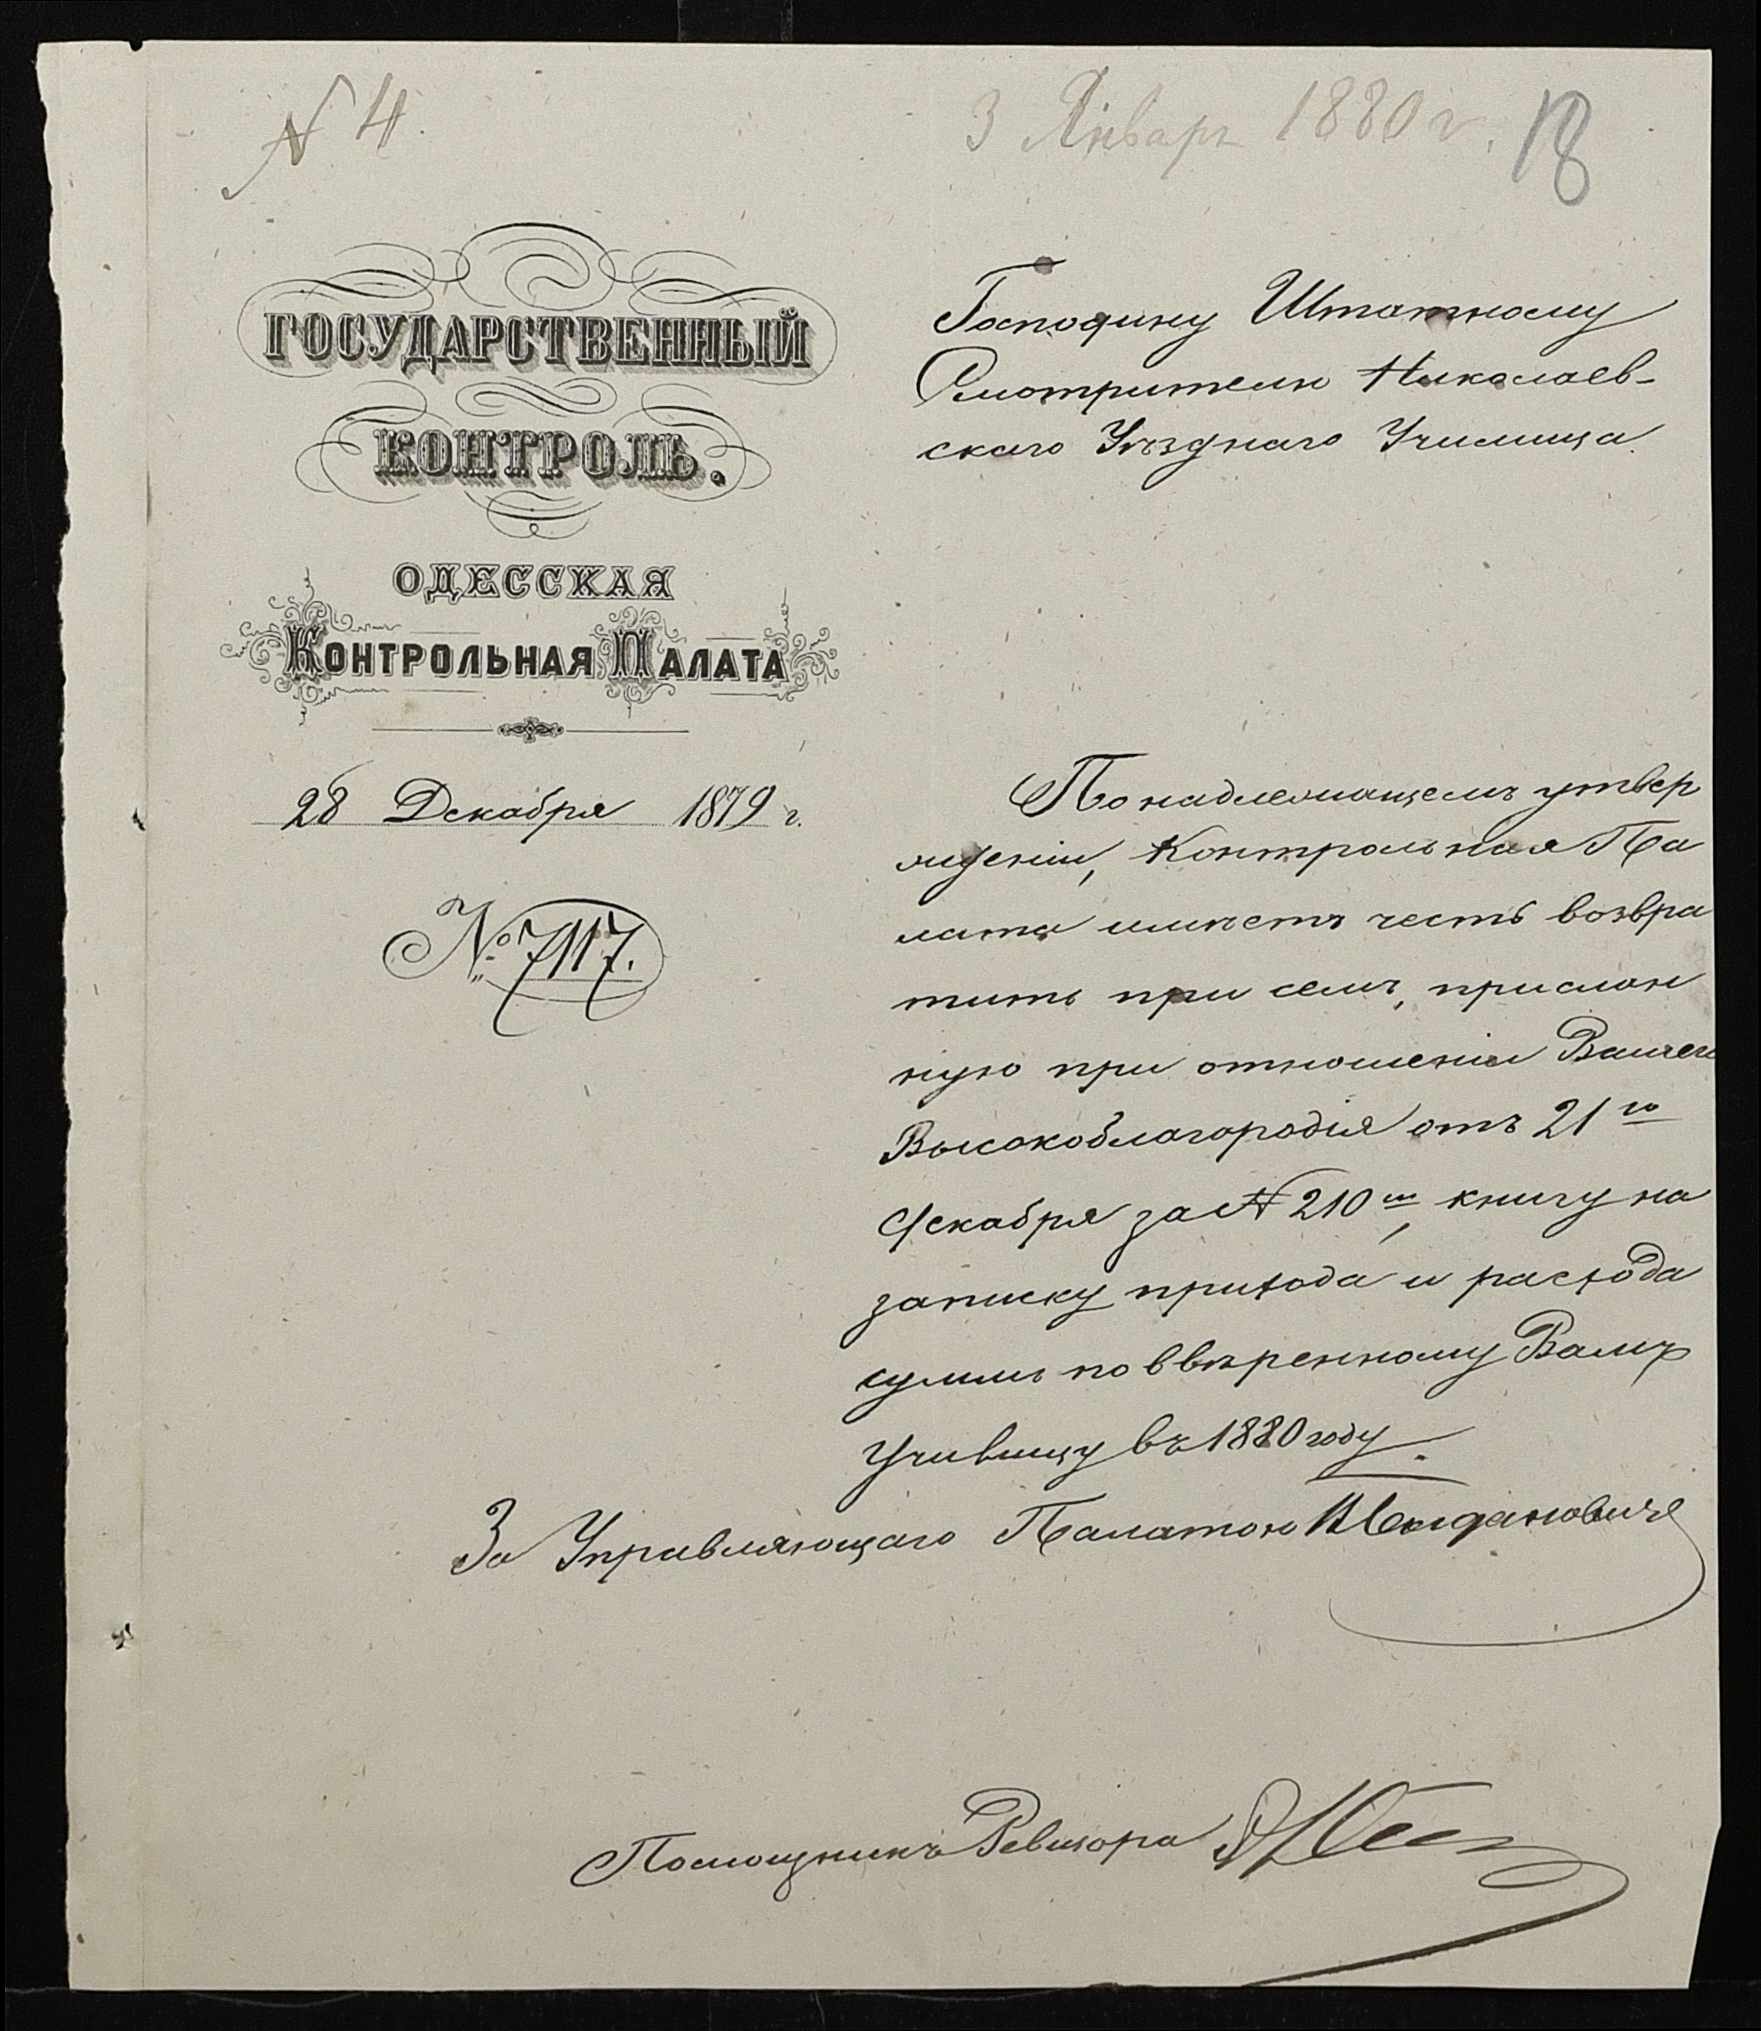 N 4.
3 Январь 1880 г.
18
ГОСУДАРСТВЕННЫЙ
КОНТРОЛЬ.
ОДЕССКАЯ
КОНТРОЛЬНАЯ ПАЛАТА
28 Декабря 1879 г.
№ 7117.
Господину Штатному
Смотрителю Николаев-
скаго Уѣзднаго Училища.
По надлежащемъ утвер
жденіи, Контрольная Па
лата имѣетъ честь возвра
тить при семъ, прислан
ную при отношеніи Вашего
Высокоблагородія отъ 21го
Декабря за N 210мъ, книгу на
записку прихода и расхода
суммъ по ввѣренному Вамъ
Училищу въ 1880 году.
За Управляющаго Палатою
Помощникъ Ревизора